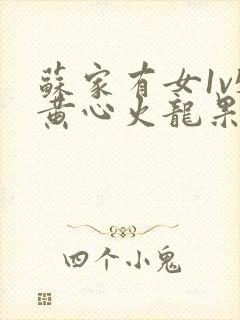 蘇家有女1v
黃心火龍果
四个小鬼